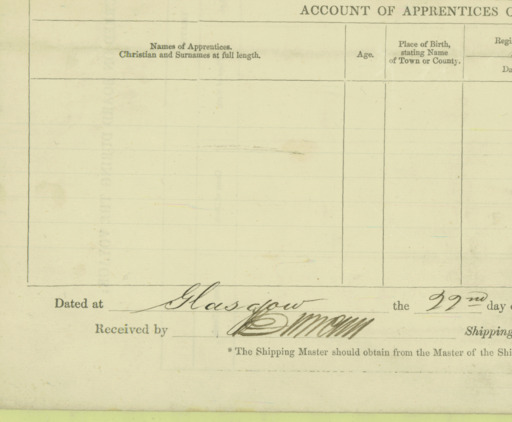 ACCOUNT OF APPRENTICES
Names of Apprentices.
Christian and Surnames at full length.
Age.
Place of Birth,
stating Name
of Town or County.
Regi
Da
Dated at Glasgow the 22nd day
Received by Shipping
* The Shipping Master should obtain from the Master of the Shi